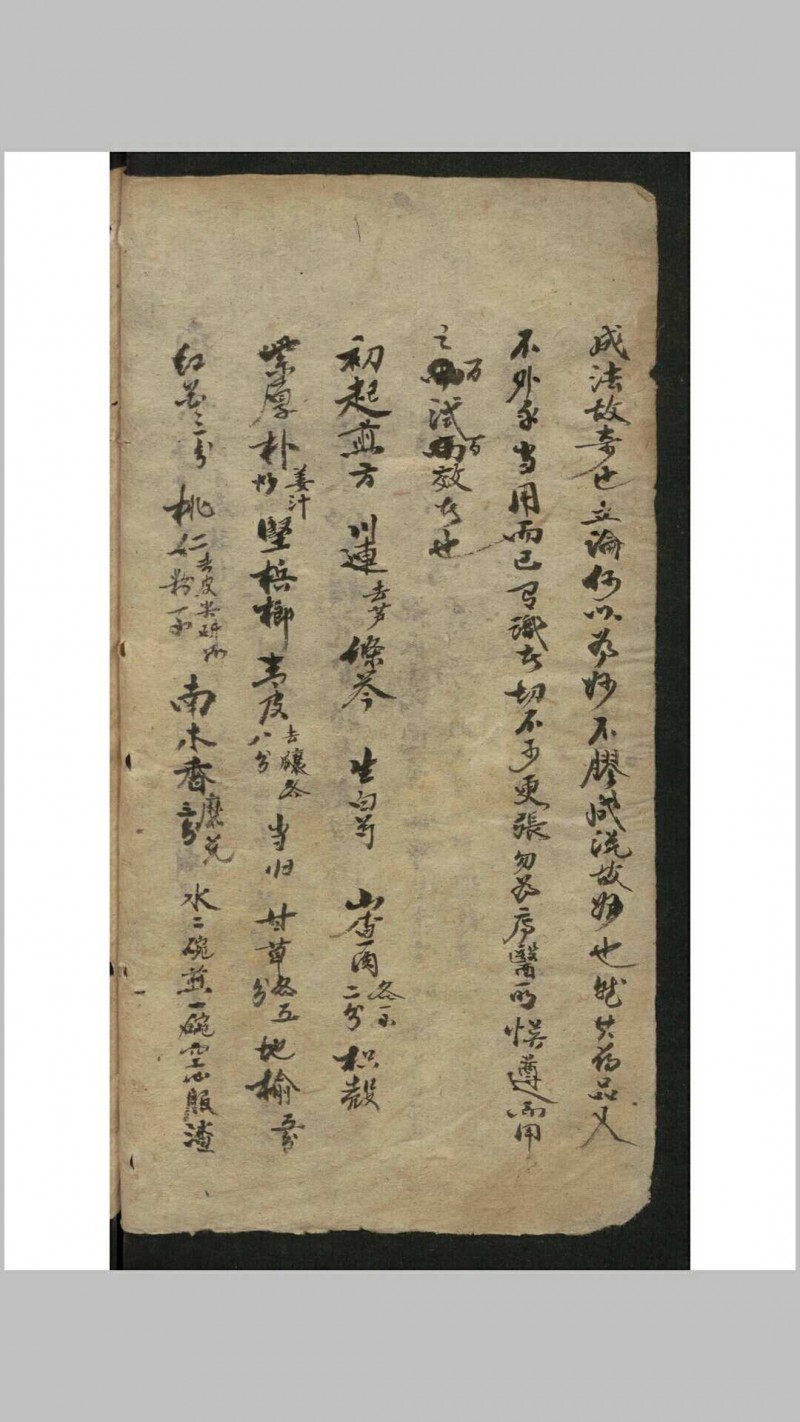 成法故奇也立論何以為妙不膠成説故妙也然其药品又
不外乎當用而已有識者切不可更張勿為庸醫所悮遵而用
之万試百效者也
初起煎方 川連去芦 條芩 生白芍 山查肉各一錢二分 枳殼
紫厚朴姜汁炒 堅梹榔 青皮去穰各八分 当归 甘草各五分 地榆五分
红花三分 桃仁去皮尖研如粉一錢 南木香磨兑三分 水二碗煎一碗空心服渣